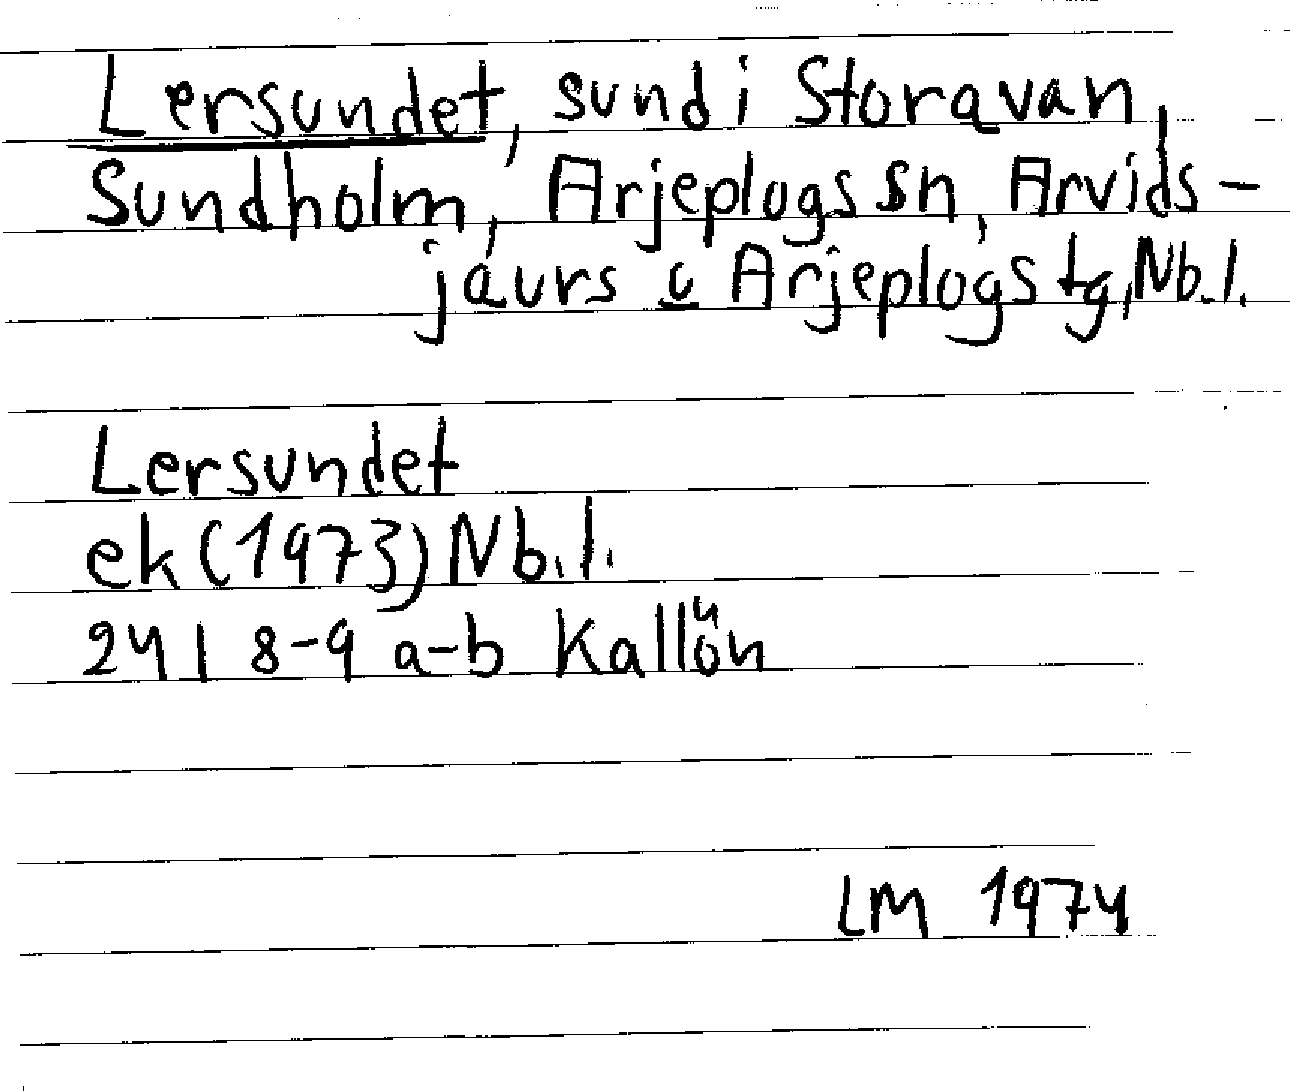 Lersundet, sund i Storavan,
Sundholm, Arjeplogs sn, Arvids-
jaurs o Arjeplogs tg, Nb.l.
Lersundet
ek (1973) Nb.l.
24 I 8-9 a-b Kallön
LM 1974